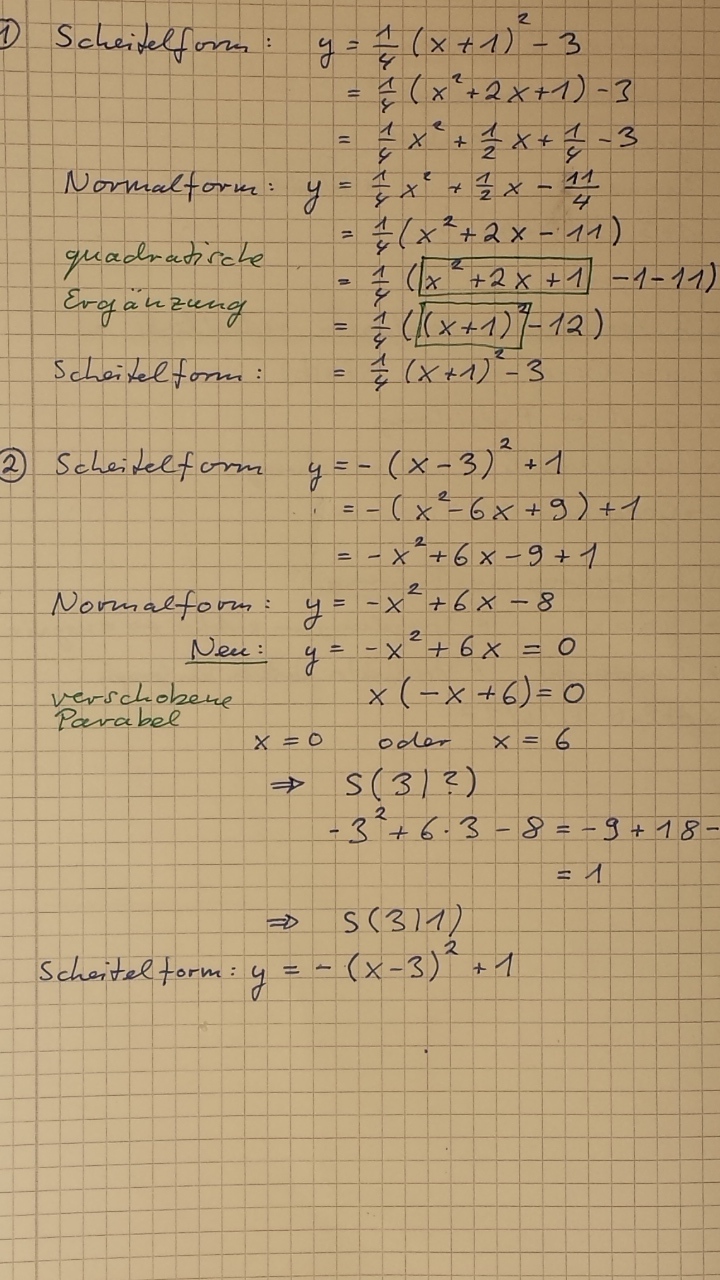 ① Scheitelform: y = 1/4 (x+1)² - 3
= 1/4 (x²+2x+1) - 3
= 1/4 x² + 1/2 x + 1/4 - 3
Normalform: y = 1/4 x² + 1/2 x - 11/4
= 1/4 (x²+2x-11)
quadratische
= 1/4 (x²+2x+1 -1-11)
Ergänzung
= 1/4 ((x+1)²-12)
Scheitelform: = 1/4 (x+1)² - 3
② Scheitelform y = - (x-3)² + 1
= - (x²-6x+9) + 1
= -x²+6x-9+1
Normalform: y = -x²+6x-8
Neu: y = -x²+6x = 0
verschobene
x(-x+6) = 0
Parabel
x = 0 oder x = 6
⇒ S(3|?)
-3²+6·3-8 = -9+18-
= 1
⇒ S(3|1)
Scheitelform: y = - (x-3)² + 1